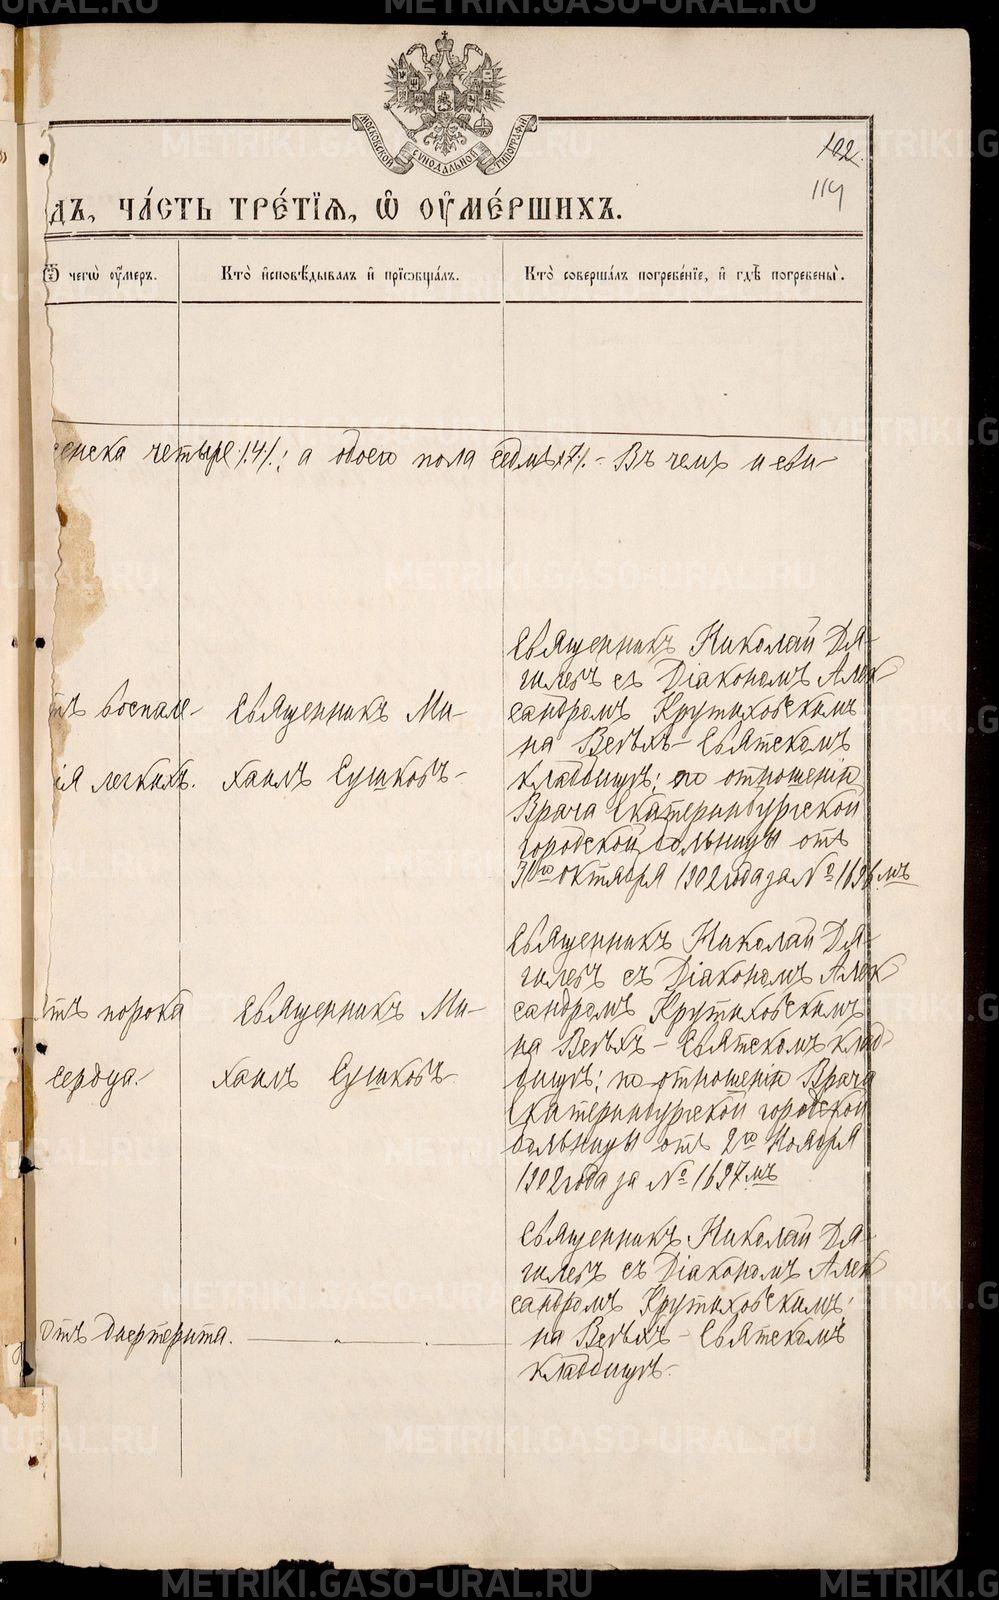 METRIKI.GASO-URAL.RU
МОСКОВСКОЙ СѴНОДАЛЬНОЙ ТИПОГРАФІИ
102.
114
дъ, ча́сть тре́тїѧ, ѡ҆ ᲂу҆ме́ршихъ.
Ѿ чегѡ̀ ᲂу҆́меръ.
Кто̀ и҆сповѣ́дывалъ и҆ прїѡбща́лъ.
Кто̀ соверша́лъ погребе́нїе, и҆ гдѣ̀ погребены̀.
женска четыре /.4/.; а обоего пола седмь /.7/. – Въ чемъ и сви-
отъ воспале-
нія легкихъ.
Священникъ Ми-
хаилъ Сушковъ –
Священникъ Николай Дя-
гилевъ съ Діакономъ Алек
сандромъ Крутиховскимъ
на Верхъ – Святскомъ
кладбищѣ; по отношенію
Врача Екатеринбургской
городской больницы отъ
31го октября 1902 года за № 1696мъ
отъ порока
сердца. –
Священникъ Ми-
хаилъ Сушковъ
Священникъ Николай Дя-
гилевъ съ Діакономъ Алек
сандромъ Крутиховскимъ
на Верхъ – Святскомъ клад-
бищѣ; по отношенію Врача
Екатеринбургской городской
больницы отъ 2го Ноября
1902 года за № 1697мъ
отъ дифтерита.
Священникъ Николай Дя-
гилевъ съ Діакономъ Алек
сандромъ Крутиховскимъ
на Верхъ – Святскомъ
кладбищѣ. –